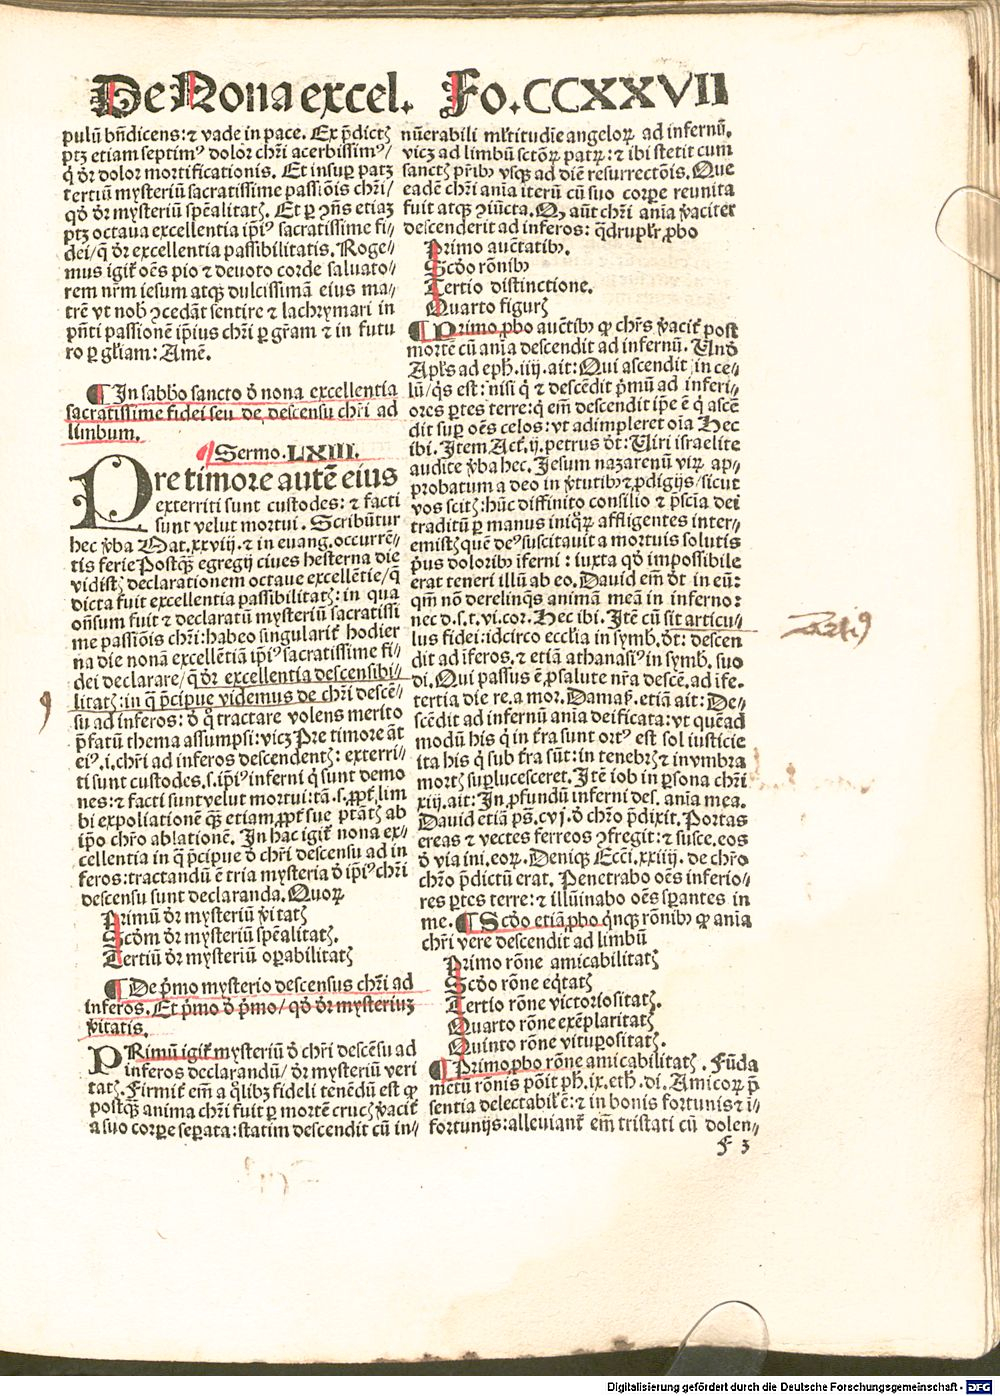 De Nona excel. Fo. CCXXVII
pulū bn̄dicens: ⁊ vade in pace. Ex p̄dictꝫ
ptꝫ etiam septimꝰ dolor chr̄i acerbissimꝰ/
q̄ dr̄ dolor mortificationis. Et insuꝑ patꝫ
tertiū mysteriū sacratissime passiōis chr̄i/
qd̄ dr̄ mysteriū spēalitatꝭ. Et ꝑ ꝯn̄s etiaꝫ
ptꝫ octaua excellentia ip̄iꝰ sacratissime fi⸗
dei/q̄ dr̄ excellentia passibilitatis. Roge⸗
mus igit̄ oēs pio ⁊ deuoto corde saluato/
rem nr̄m iesum atqꝫ dulcissimā eius ma⸗
trē vt nob̄ ꝯcedāt sentire ⁊ lachrymari in
pn̄ti passionē ip̄ius chr̄i ꝑ gr̄am ⁊ in futu
ro ꝑ gl̄iam: Amē.
¶ In sabb̄o sancto d̄ nona excellentia
sacratissime fidei seu de descensu chr̄i ad
limbum.
¶ Sermo. LXIII.
Pre timore autē eius
exterriti sunt custodes: ⁊ facti
sunt velut mortui. Scribūtur
hec v̄ba Mat. xxviij. ⁊ in euang. occurrē⸗
tis ferie Postq̄ꝫ egregij ciues hesterna die
vidistꝭ declarationem octaue excellētie/q̄
dicta fuit excellentia passibilitatꝭ: in qua
on̄sum fuit ⁊ declaratū mysteriū sacratissi
me passiōis chr̄i: habeo singularit̄ hodier
na die nonā excellētiā ip̄iꝰ sacratissime fi⸗
dei declarare/q̄ dr̄ excellentia descensibi⸗
litatꝭ: in q̄ p̄cipue videmus de chr̄i descē⸗
su ad inferos: d̄ q̄ tractare volens merito
p̄fatū thema assumpsi: vicꝫ Pre timore āt
eiꝰ. i. chr̄i ad inferos descendentꝭ: exterri⸗
ti sunt custodes. s. ip̄iꝰ inferni q̄ sunt demo
nes: ⁊ facti sunt velut mortui: tā. s. ꝓpt̄ lim
bi expoliationē qꝫ etiam ꝓpt̄ sue pt̄atꝭ ab
ip̄o chr̄o ablationē. In hac igit̄ nona ex⸗
cellentia in q̄ p̄cipue d̄ chr̄i descensu ad in
feros: tractandū ē tria mysteria d̄ ip̄iꝰ chr̄i
descensu sunt declaranda. Quoꝝ
Primū dr̄ mysteriū v̄itatꝭ
Scd̄m dr̄ mysteriū spēalitatꝭ.
Tertiū dr̄ mysteriū oꝑabilitatꝭ
¶ De p̄mo mysterio descensus chr̄i ad
inferos. Et p̄mo d̄ p̄mo/ qd̄ dr̄ mysteriuꝫ
v̄itatis.
PRimū igit̄ mysteriū d̄ chr̄i descēsu ad
inferos declarandū/ dr̄ mysteriū veri
tatꝭ. Firmit̄ em̄ a q̄libꝫ fideli tenēdū est qꝫ
postq̄ꝫ anima chr̄i fuit ꝑ mortē crucꝭ v̄acit̄
a suo corꝑe seꝑata: statim descendit cū in⸗
nūerabili ml̄titudie angeloꝝ ad infernū.
vicꝫ ad limbū sctōꝝ patꝝ: ⁊ ibi stetit cum
sanctꝭ pr̄ibꝰ vsqꝫ ad diē resurrectōis. Que
eadē chr̄i aīa iterū cū suo corꝑe reunita
fuit atqꝫ ꝯiūcta. Qꝫ aūt chr̄i aīa v̄aciter
descenderit ad inferos: q̄drupl̄r ꝓbo
Primo auc̄tatibꝰ.
Scd̄o rōnibꝰ
Tertio distinctione.
Quarto figurꝭ
¶ Primo ꝓbo auc̄tibꝰ qꝫ chr̄s v̄acit̄ post
mortē cū aīa descendit ad infernū. Und̄
Apl̄s ad eph. iiij. ait: Qui ascendit in ce⸗
lū/q̄s est: nisi q̄ ⁊ descēdit p̄mū ad inferi⸗
ores ꝑtes terre: q̄ em̄ descendit ip̄e ē q̄ ascē
dit suꝑ oēs celos: vt adimpleret oīa Hec
ibi. Itē Act̄. ij. petrus dt̄: Uiri israelite
audite v̄ba hec. Jesum nazarenū virꝫ ap⸗
probatum a deo in v̄tutibꝰ ⁊ ꝓdigijs/sicut
vos scitꝭ: hūc diffinito consilio ⁊ p̄scia dei
traditū ꝑ manus iniq̄ꝝ affligentes inter⸗
emistꝭ quē deꝰ suscitauit a mortuis solutis
p̄us doloribꝰ īferni: iuxta qd̄ impossibile
erat teneri illū ab eo. Dauid em̄ dt̄ in eū:
qm̄ nō derelinq̄s animā meā in inferno:
nec d. s. t. vi. cor. Hec ibi. Itē cū sit articu⸗
lus fidei: idcirco eccl̄ia in symb. dt̄: descen
dit ad īferos. ⁊ etiā athanasiꝰ in symb. suo
di. Qui passus ē ꝓ salute nr̄a descē. ad īfe.
tertia die re. a mor. Damaſ. etiā ait: De⸗
scēdit ad infernū aīa deificata: vt quēad
modū his q̄ in t̄ra sunt ortꝰ est sol iusticie
ita his q̄ sub t̄ra sūt: in tenebrꝭ ⁊ in vmbra
mortꝭ suꝑlucesceret. Itē iob in ꝑsona chr̄i
xij. ait: In ꝓfundū inferni des. aīa mea.
Dauid etiā ps̄. cvj. d̄ chr̄o p̄dixit. Portas
ereas ⁊ vectes ferreos ꝯfregit: ⁊ susce. eos
d̄ via ini. eoꝝ. Deniqꝫ Ecc̄i. xxiiij. de chr̄o
chr̄o p̄dictū erat. Penetrabo oēs inferio⸗
res ꝑtes terre: ⁊ illūinabo oēs sꝑantes in
me. ¶ Scd̄o etiā ꝓbo q̄nqꝫ rōnibꝰ qꝫ aīa
chr̄i vere descendit ad limbū
Primo rōne amicabilitatꝭ
Scd̄o rōne eq̄tatꝭ
Tertio rōne victoriositatꝭ.
Quarto rōne exēplaritatꝭ
Quinto rōne vituꝑositatꝭ.
¶ Primo ꝓbo rōne amicabilitatꝭ. Fūda
mētū rōnis pōit ph̄. ix. eth. di. Amicoꝝ p̄
sentia delectabil̄ ē: ⁊ in bonis fortunis ⁊ ī⸗
fortunijs: alleuiant̄ em̄ tristati cū dolen⸗
F 3
Digitalisierung gefördert durch die Deutsche Forschungsgemeinschaft - DFG